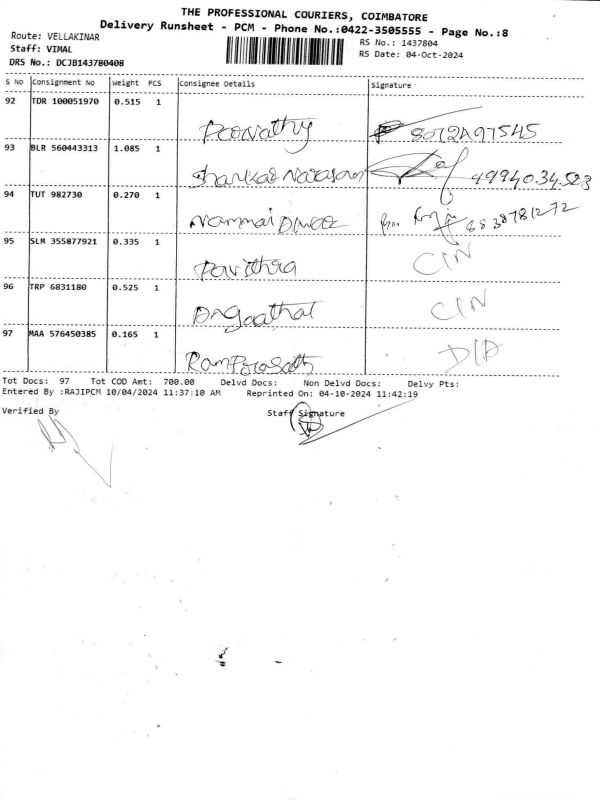 THE PROFESSIONAL COURIERS, COIMBATORE
Delivery Runsheet - PCM - Phone No.:0422-3505555 - Page No.:8
Route: VELLAKINAR
RS No.: 1437804
Staff: VIMAL
RS Date: 04-Oct-2024
DRS No.: DCJB143780408
S No Consignment No Weight PCS Consignee Details Signature
92 TDR 100051970 0.515 1
93 BLR 560443313 1.085 1
99940.34.523
94 TUT 982730 0.270 1
8838781272
95 SLM 355877921 0.335 1
Pavithra CIN
96 TRP 6831180 0.525 1
CIN
97 MAA 576450385 0.165 1
Ramprasath
Tot Docs: 97 Tot COD Amt: 700.00 Delvd Docs: Non Delvd Docs: Delvy Pts:
Entered By :RAJIPCM 10/04/2024 11:37:10 AM Reprinted On: 04-10-2024 11:42:19
Verified By Staff Signature